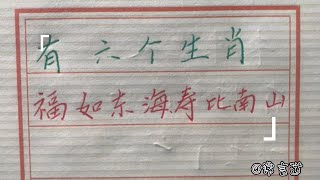 「有六个生肖
福如东海寿比南山」